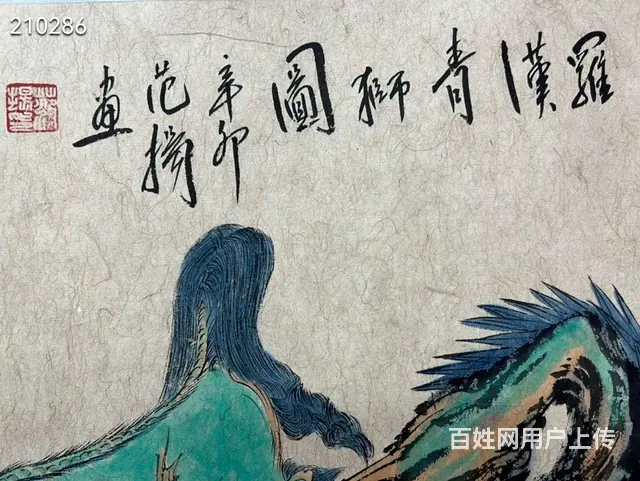 210286
羅漢青獅圖
辛卯
范揚
畫
百姓网用户上传